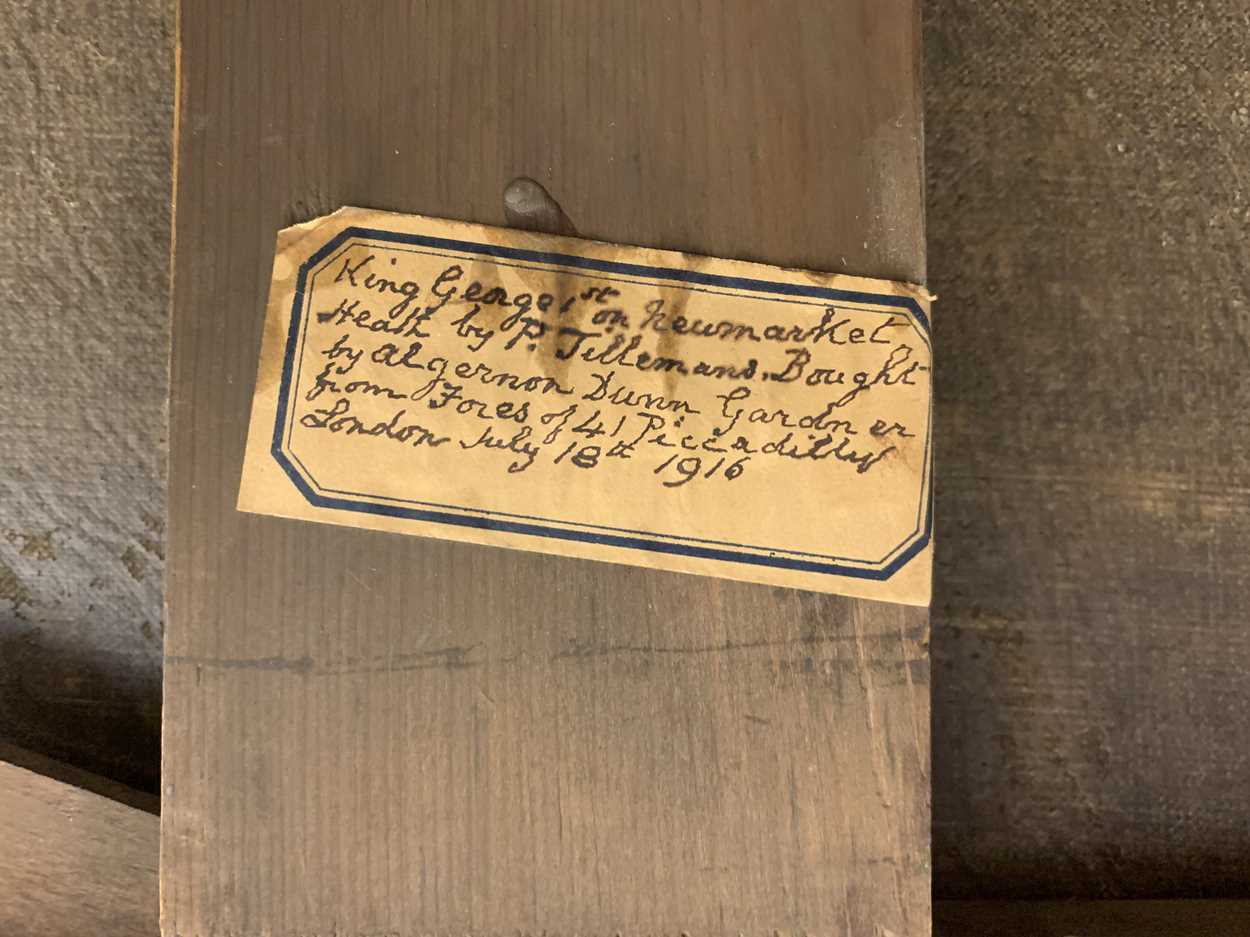 King George 1st on Newmarket
Heath by P. Tillemans. Bought
by Algernon Dunn Gardner
from Fores of 41 Piccadilly
London July 18th 1916